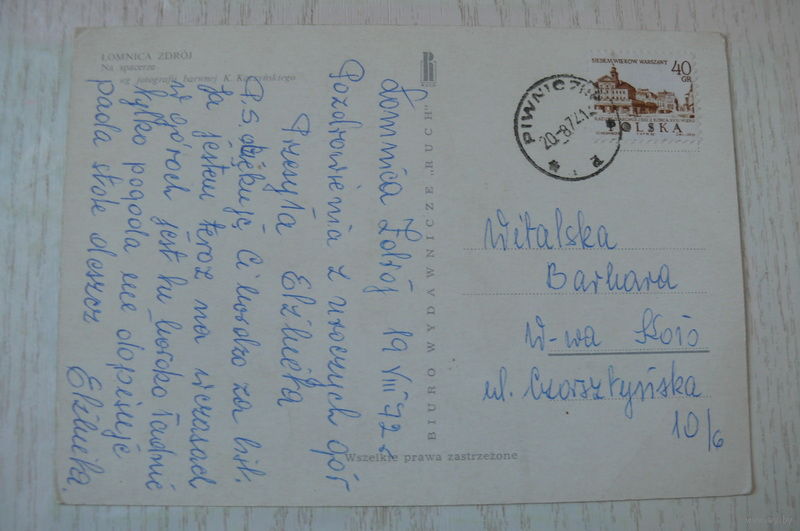 ŁOMNICA ZDRÓJ
Na spacerze
wg fotografii barwnej K. Kaczyńskiego
Łomnica Zdrój 19 VIII 72 r
Pozdrowienia z uroczych gór
Przesyła
Elżbieta
P.S dziękuję Ci bardzo za list.
Ja jestem teraz na wczasach
w górach jest tu bardzo ładnie
tylko pogoda nie dopisuje
pada stale deszcz
Elżbieta.
RUCH
BIURO WYDAWNICZE „RUCH"
Wszelkie prawa zastrzeżone
SIEDEM WIEKÓW WARSZAWY
40
GR
POLSKA
PIWNICZNA
20-8.72
Witalska
Barbara
W-wa
ul. Czorsztyńska
10/6